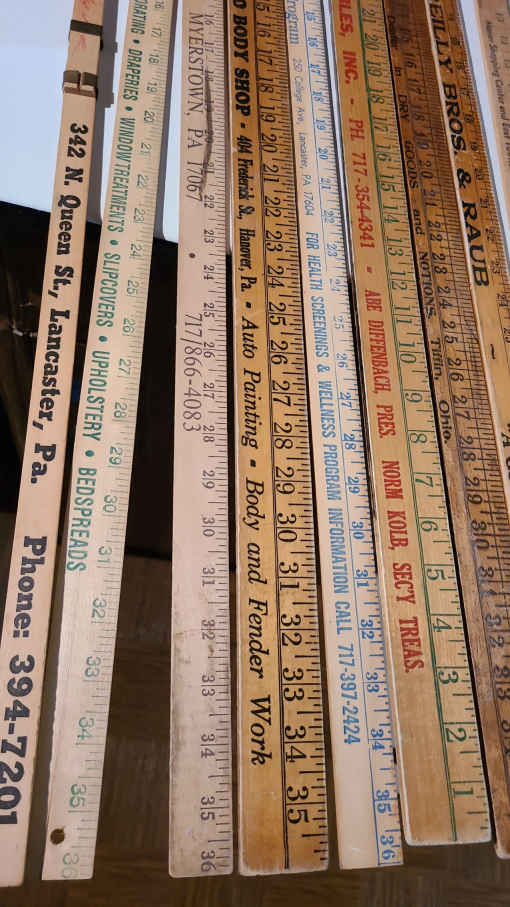 342 N. Queen St., Lancaster, Pa. Phone: 394-7201
DRAPERIES • WINDOW TREATMENTS • SLIPCOVERS • UPHOLSTERY • BEDSPREADS
16 17 18 19 20 21 22 23 24 25 26 27 28 29 30 31 32 33 34 35 36
MYERSTOWN, PA 17067 717/866-4083
22 23 24 25 26 27 28 29 30 31 32 33 34 35 36
BODY SHOP • 404 Frederick St., Hanover, Pa. • Auto Painting • Body and Fender Work
15 16 17 18 19 20 21 22 23 24 25 26 27 28 29 30 31 32 33 34 35
Program 250 College Ave., Lancaster, PA 17604 FOR HEALTH SCREENINGS & WELLNESS PROGRAM INFORMATION CALL 717-397-2424
15 16 17 18 19 20 21 22 23 24 25 26 27 28 29 30 31 32 33 34 35 36
INC. - PH. 717-354-4341 - ABE DIFFENBACH, PRES. NORM KOLB, SEC'Y TREAS.
21 20 19 18 17 16 15 14 13 12 11 10 9 8 7 6 5 4 3 2 1
in DRY GOODS and NOTIONS, Tiffin, Ohio.
22 23 24 25 26 27 28 29 30 31 32 33
REILLY BROS. & RAUB